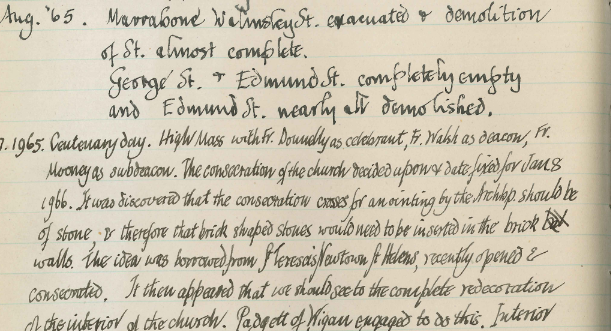 Aug. '65. Marrabone Walmsley St. evacuated & demolition
of St. almost complete.
George St. & Edmund St. completely empty
and Edmund St. nearly all demolished.
7. 1965. Centenary day. High Mass with Fr. Donnelly as celebrant, Fr. Walsh as deacon, Fr.
Mooney as subdeacon. The consecration of the church decided upon & date fixed for Jan 8
1966. It was discovered that the consecration crosses for anointing by the Archbp. should be
of stone, & therefore that brick shaped stones would need to be inserted in the brick
walls. The idea was borrowed from St Teresa's Newtown St Helens, recently opened &
consecrated. It then appeared that we should see to the complete redecoration
of the interior of the church. Padgett of Wigan engaged to do this. Interior